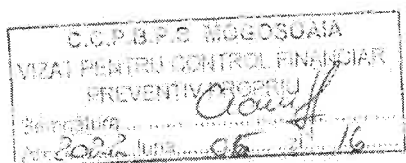 C.C.P.B.P.S. MOGOSOAIA
VIZAT PENTRU CONTROL FINANCIAR
PREVENTIV PROPRIU
Semnatura
Anul 2022 luna 05 zi 16